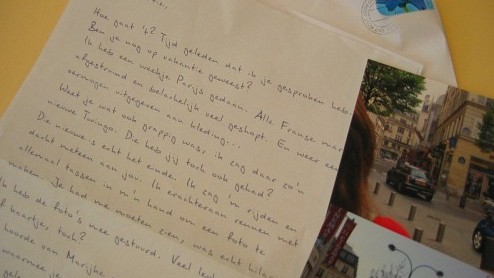 Hoe gaat 't? Tijd geleden dat ik je gesproken heb.
Ben je nog op vakantie geweest?
Ik heb een weekje Parijs gedaan. Alle Franse mar
afgestruind en belachelijk veel geshopt. En weer een
vermogen uitgegeven aan kleding...
Weet je wat ook grappig was: ik zag daar zo'n
nieuwe Twingo. Die heb jij toch ook gehad?
De nieuwe is echt het einde. Ik zag 'm rijden en
dacht meteen aan jou. Ik erachteraan rennen met
allemaal tassen in m'n hand om een foto te
maken. Je had me moeten zien, was echt hila
Ik heb de foto's mee gestuurd. Veel
kaartjes, toch?
hoorde van Marijke
waarmee je